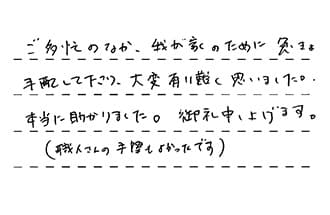 ご多忙のなか、我が家のために急きょ
手配して下さり、大変有り難く思いました。
本当に助かりました。御礼申し上げます。
(職人さんの手際もよかったです)